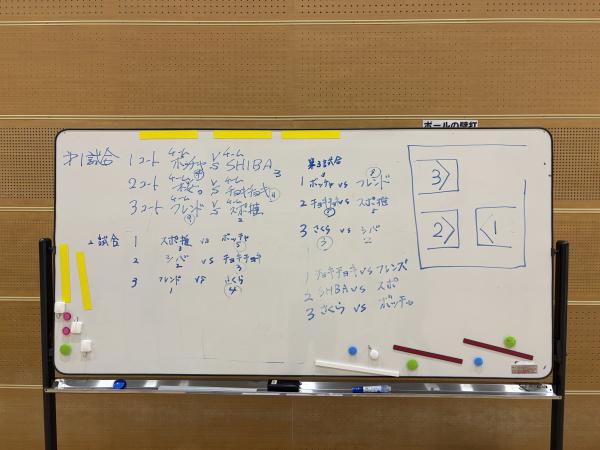 ボールの壁打
第1試合 1コート チーム ボッチャ vs チーム SHIBA
4 3
2コート チーム 桜。 vs チーム チョキチョキ
3コート チーム フレンド vs チーム スポ推
2
2試合 1 スポ推 vs ボッチャ
3 5
2 シバ vs チョキチョキ
2 3
3 フレンド vs さくら
1 4
第3試合
1 ボッチャ vs フレンド
8
2 チョキチョキ vs スポ推
5
3 さくら vs シバ
3 2
1 チョキチョキ vs フレンズ
2 SHBA vs スポ
3 さくら vs ボッチャ
3
2 1